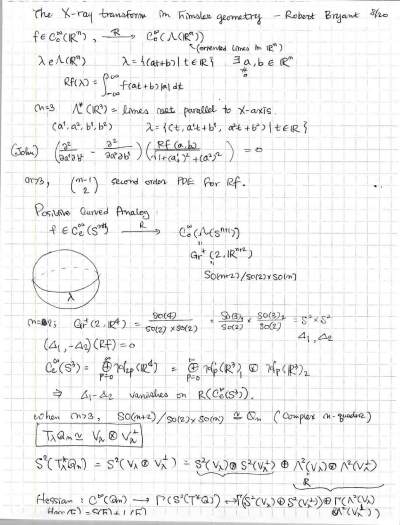 The X-ray transform in Finsler geometry - Robert Bryant 5/20
f ∈ C_c^∞(ℝⁿ) →^R C_c^∞(Λ(ℝⁿ))
(oriented lines in ℝⁿ)
λ ∈ Λ(ℝⁿ) λ = {(at+b) | t ∈ ℝ} ∃ a, b ∈ ℝⁿ
Rf(λ) = ∫_{-∞}^{∞} f(at+b)|a| dt
n=3 Λ*(ℝ³) = lines not parallel to x-axis
(a¹, a², b¹, b²) λ = {(t, a¹t+b¹, a²t+b²) | t ∈ ℝ}
(John) (∂²/∂a¹∂b² - ∂²/∂a²∂b¹)(Rf(a,b)/√(1+(a¹)²+(a²)²)) = 0
n>3, (n-1 2) second order PDE for Rf.
Positive Curved Analog
f ∈ C_e^∞(Sⁿ⁺¹) →^R C_e^∞(Λ(Sⁿ⁺¹))
"
Gr⁺(2, ℝⁿ⁺²)
"
SO(n+2)/SO(2)×SO(n)
λ
n=2, Gr⁺(2, ℝ⁴) = SO(4)/SO(2)×SO(2) = SO(3)₁/SO(2) × SO(3)₂/SO(2) = S²×S²
Δ₁, Δ₂
(Δ₁-Δ₂)(Rf) = 0
C_e^∞(S³) = ⊕_{p=0}^∞ H_{2p}(ℝ⁴) = ⊕_{p=0}^∞ H_p(ℝ³)₁ ⊗ H_p(ℝ³)₂
⇒ Δ₁-Δ₂ vanishes on R(C_e^∞(S³)).
when n≥3, SO(n+2)/SO(2)×SO(n) ≃ Q_n (Complex n-quadric)
T_λQ_n ≃ V_λ ⊗ V_λ^⊥
S²(T_λ*Q_n) = S²(V_λ ⊗ V_λ^⊥) = S²(V_λ) ⊗ S²(V_λ^⊥) ⊕ Λ²(V_λ) ⊗ Λ²(V_λ^⊥)
Hessian: C^∞(Q_n) → Γ(S²(T*Q)) → Γ(S²(V_λ) ⊗ S²(V_λ^⊥)) ⊕ Γ(Λ²(V_λ)
⊗ Λ²(V_λ^⊥))